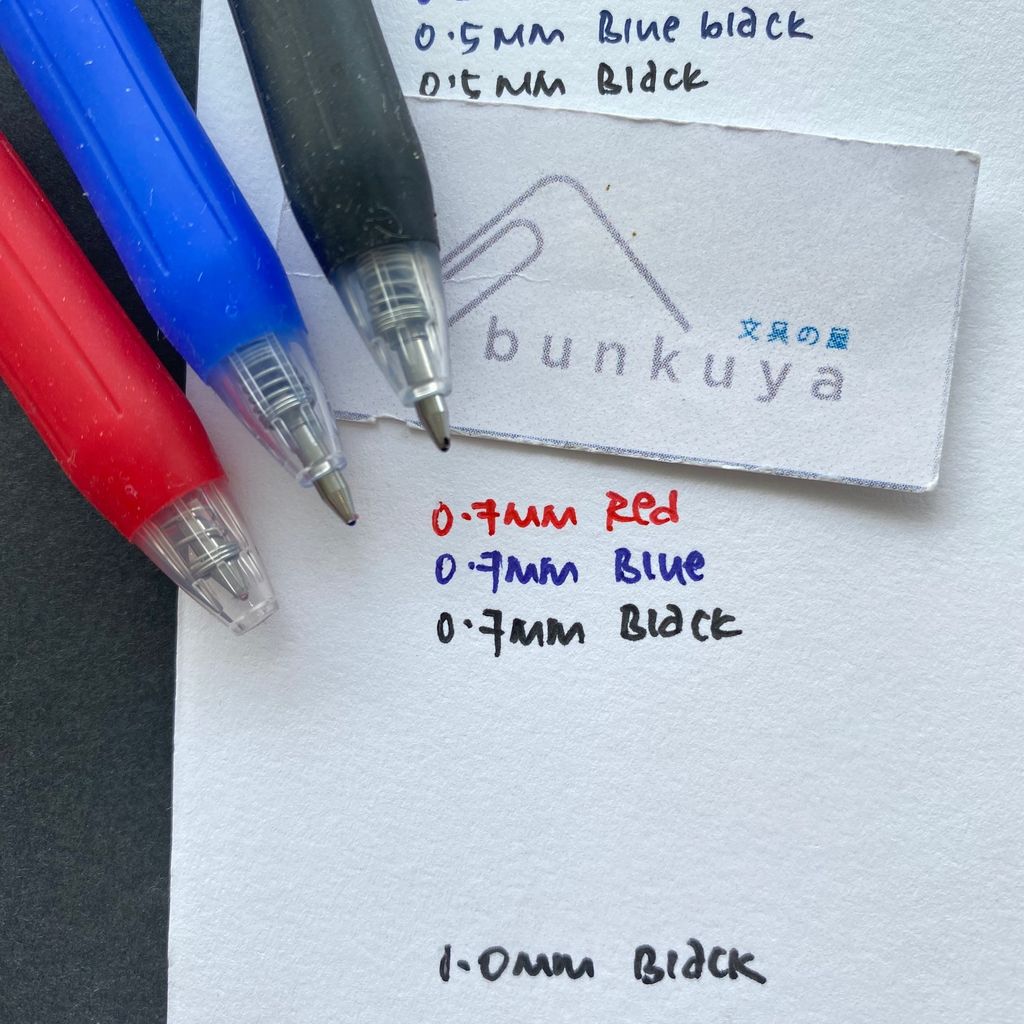 0.5mm Blue black
0.5mm Black
文具の屋
bunkuya
0.7mm Red
0.7mm Blue
0.7mm Black
1.0mm Black